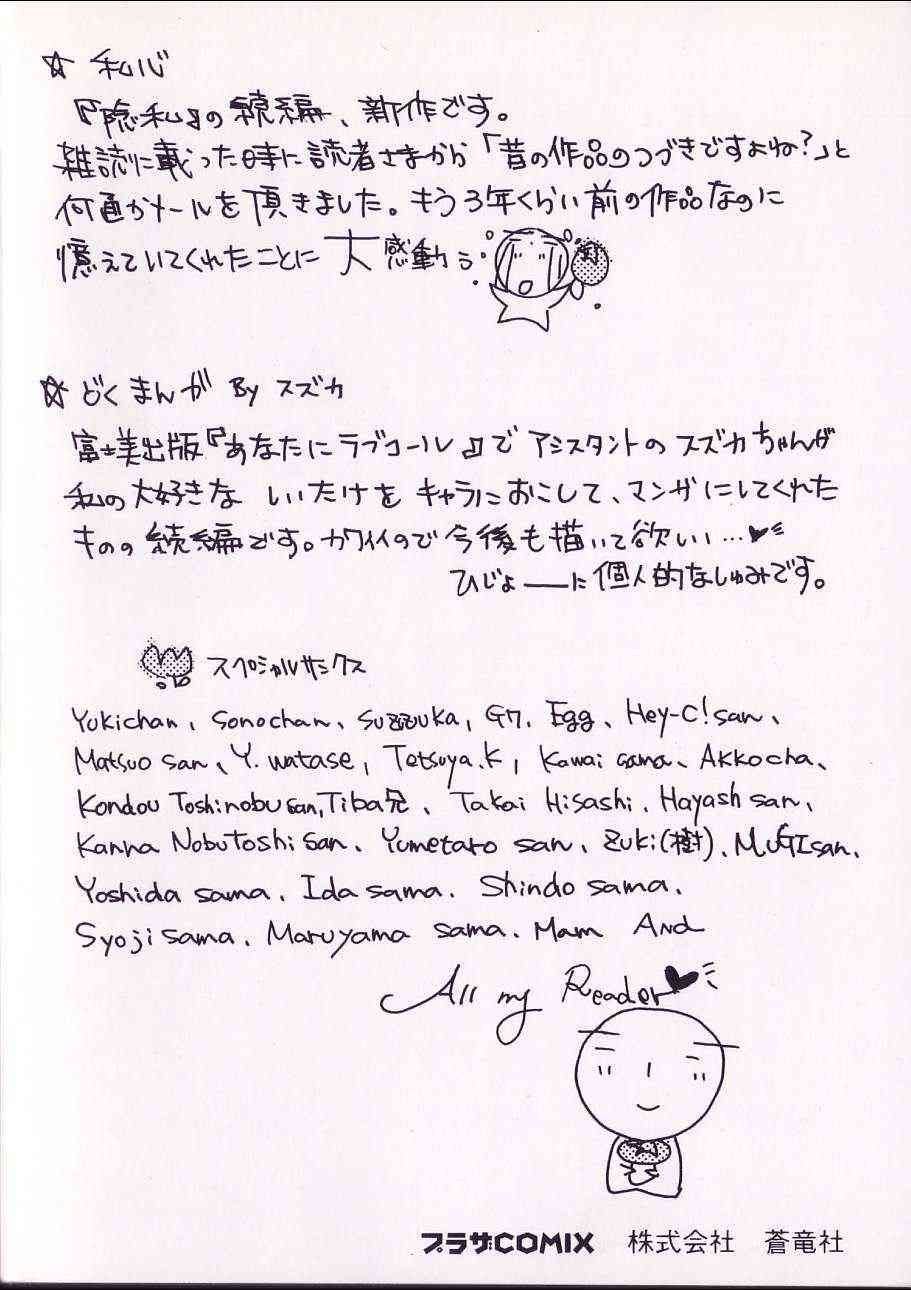 ☆ 私心
『隠私』の続編、新作です。
雑誌に載った時に読者さまから「昔の作品のつづきですよね?」と
何通かメールを頂きました。もう3年くらい前の作品なのに
憶えていてくれたことに 大感動う
☆ どくまんが By スズカ
富士美出版『あなたにラブコール』で アシスタントの スズカちゃんが
私の大好きな しいたけを キャラにおこして、マンガにしてくれた
ものの 続編です。カワイイので 今後も描いて欲しい…♥
ひじょ――に 個人的なしゅみです。
スペシャルサンクス
Yukichan、Sonochan、Suzzuka, G7. Egg、Hey-C!san、
Matsuo san、Y. watase, Tetsuya.K, Kawai sama、Akkocha、
Kondou Toshinobu san, Tiba兄、Takai Hisashi. Hayash san、
Kanna Nobutoshi san、Yumetaro san、Zuki(樹). MUGIsan.
Yoshida sama. Ida sama. Shindo sama.
Syoji sama. Maruyama sama. Mam And
All my Reader♥
プラザCOMIX 株式会社 蒼竜社